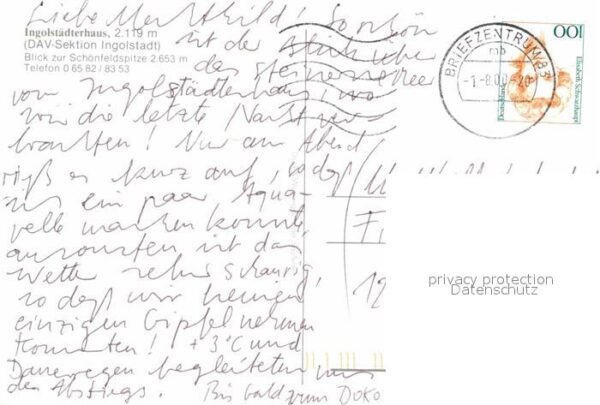 Liebe Mechthild! So schön
ist der Blick über
das steinerne Meer
vom Ingolstädterhaus, wo
wir die letzte Nacht ver-
brachten! Nur am Abend
riß es kurz auf, sodaß
ich ein paar Aqua-
relle machen konnte,
ansonsten ist das
Wetter sehr schaurig,
so daß wir keinen
einzigen Gipfel nehmen
konnten! +3°C und
Dauerregen begleiteten uns
den Abstiegs. Bis bald zum DOKO
Ingolstädterhaus, 2.119 m
(DAV-Sektion Ingolstadt)
Blick zur Schönfeldspitze 2.653 m
Telefon 0 65 82 / 83 53
BRIEFZENTRUM 83
mb
-1.-8.00-20
100
Deutschland
Elisabeth Schwarzhaupt
12
privacy protection
Datenschutz